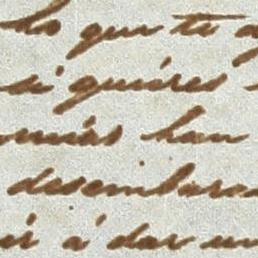 lo que te
si quieres
más han
desembarc
ir á dar un